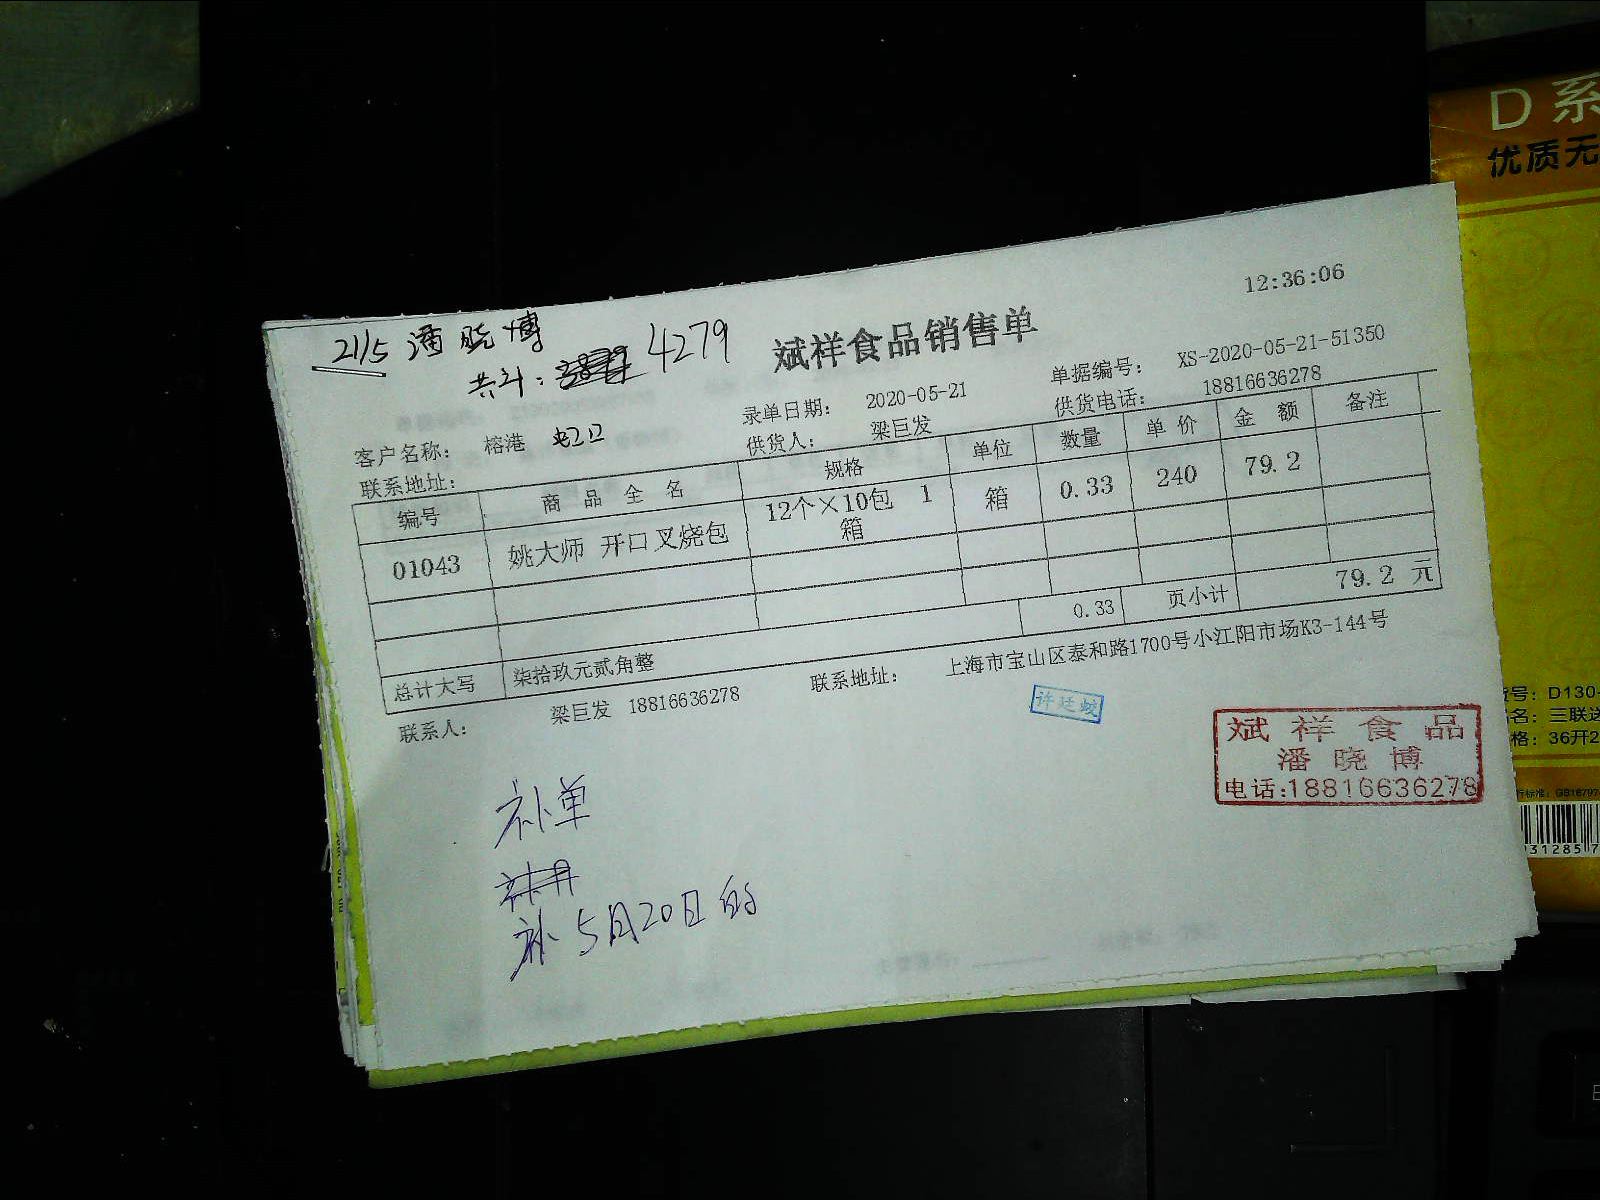 D 系
优质无
12:36:06
2115 潘晓博
共计: 4279
斌祥食品销售单
单据编号: XS-2020-05-21-51350
录单日期: 2020-05-21
供货电话: 18816636278
客户名称: 榕港
供货人: 梁巨发
联系地址:
编号 商品全名 规格 单位 数量 单价 金额 备注
01043 姚大师 开口叉烧包 12个×10包 1箱 箱 0.33 240 79.2
0.33 页小计 79.2 元
总计大写 柒拾玖元贰角整
联系人: 梁巨发 18816636278 联系地址: 上海市宝山区泰和路1700号小江阳市场K3-144号
许廷蛟
斌祥食品
潘晓博
电话:18816636278
补单
补 5月20日的
货号: D130-
品名: 三联送
规格: 36开2
31285 7